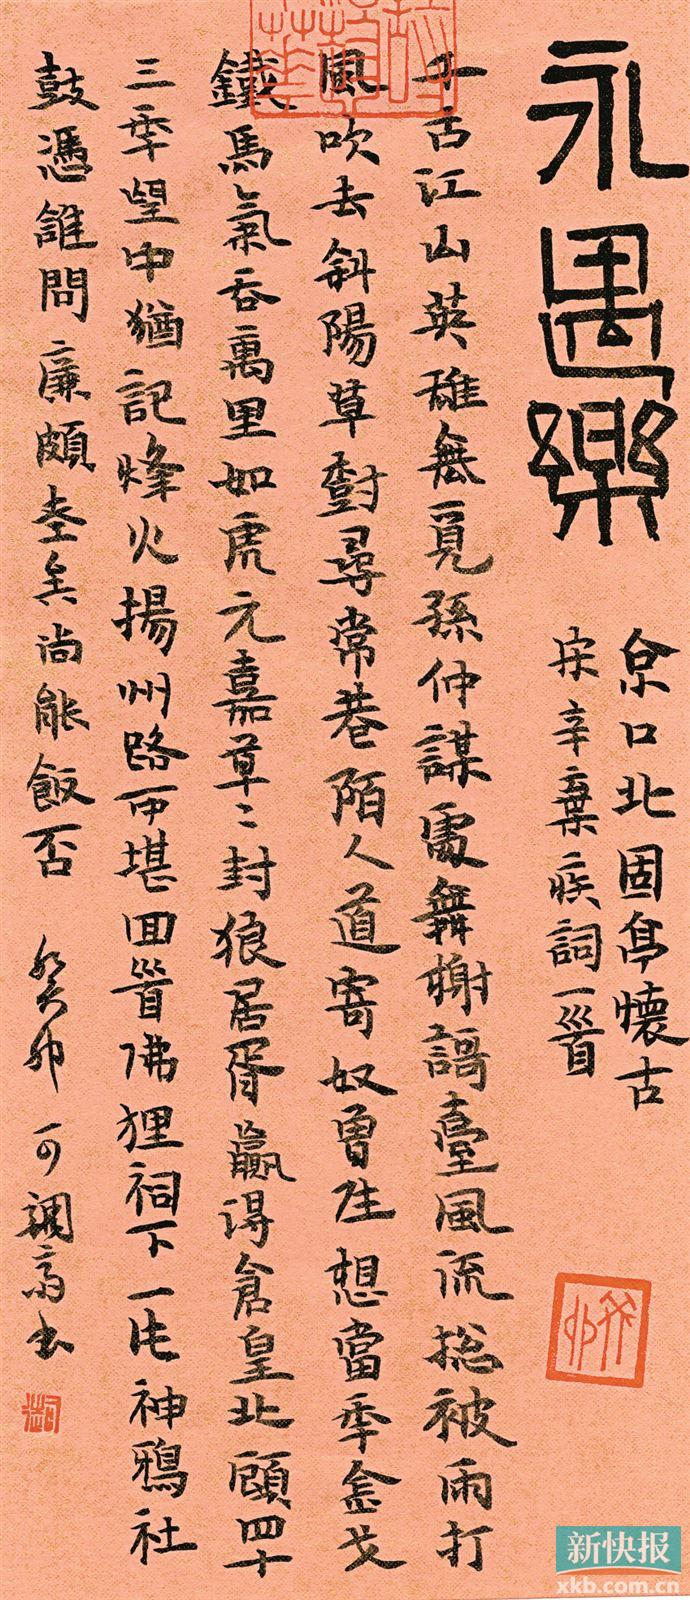 永遇樂
京口北固亭懷古
宋辛棄疾詞一首
千古江山英雄無覓孫仲謀處舞榭謌臺風流總被雨打
風吹去斜陽草樹尋常巷陌人道寄奴曾住想當年金戈
鐵馬氣吞萬里如虎元嘉草〻封狼居胥贏得倉皇北顧四十
三年望中猶記烽火揚州路可堪回首佛狸祠下一片神鴉社
鼓憑誰問廉頗老矣尚能飯否 癸卯 可調齋書
癸卯
新快报
xkb.com.cn